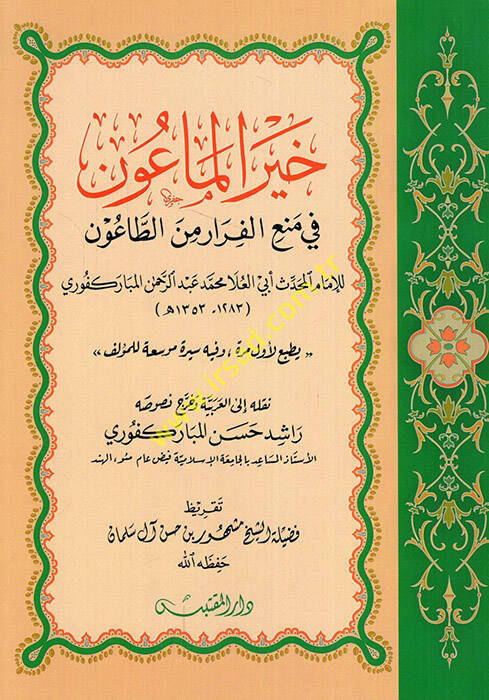 خَيْرُ المَاعُون
في مَنعِ الفِرَارِ مِنَ الطَّاعُوْن
للإمَام المحَدِّث أبي العُلا محمَّد عَبد الرَّحمٰن المبَاركفُوري
(١٢٨٣ - ١٣٥٣هـ)
« يطبع لأول مرة ، وفيه سيرة موسعة للمؤلف »
نقله إلى العَربيَّة وَخرَّج نصُوصَه
رَاشِد حَسَن المُبَارَكفُوري
الأستَاذ المسَاعِد بالجَامعَة الإسلَاميَّة فيض عَام مئو، الهند
تقريظ
فضيلة الشيخ مشهور بن حسن آل سلمان
حَفِظَه الله
دار المقتبس
www.irsad.com.tr